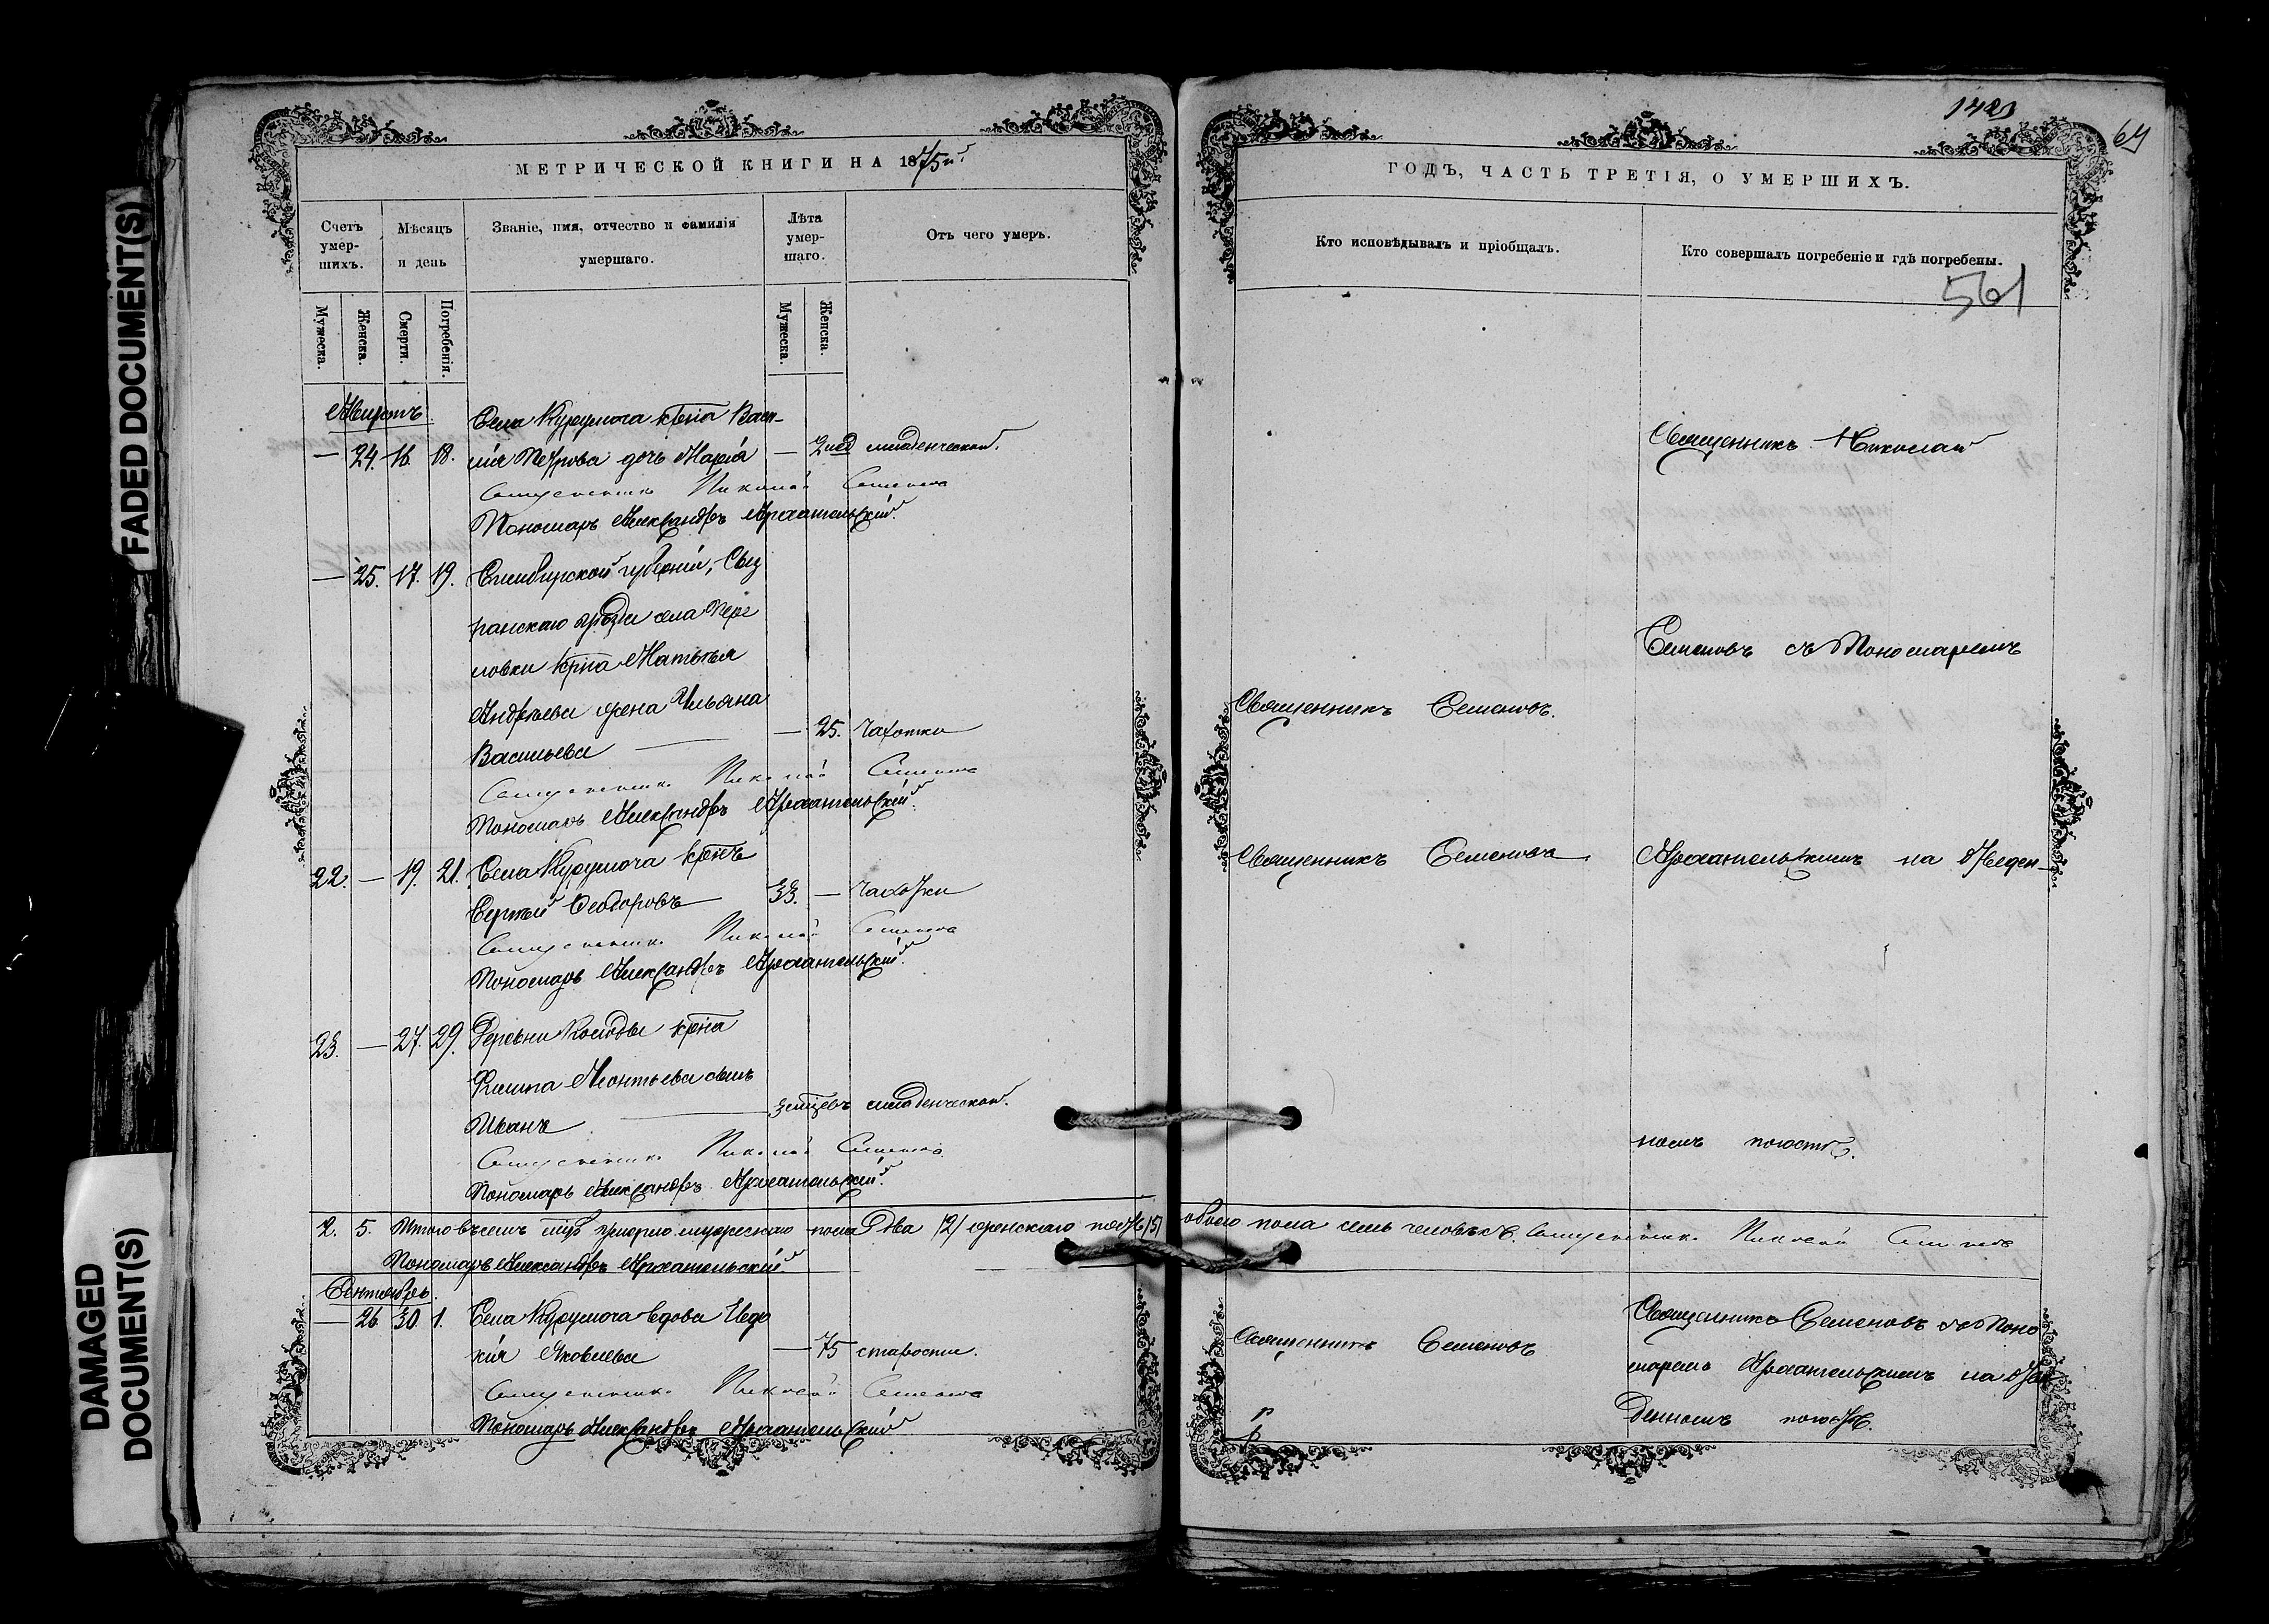 FADED DOCUMENT(S)
DAMAGED
DOCUMENT(S)
МЕТРИЧЕСКОЙ КНИГИ НА 1875й
Счетъ
умер-
шихъ.
Мѣсяцъ
и день
Званіе, имя, отчество и фамилія
умершаго.
Лѣта
умер-
шаго.
Отъ чего умеръ.
Мужеска.
Женска.
Смерти.
Погребенія.
Мужеска.
Женска.
Августъ
Села Курумоча кр-на Васи-
— 24. 16. 18. лія Петрова дочь Марія — 2 нед младенческой.
Священникъ Николай Семеновъ
Пономарь Александръ Архангельскій.
— 25. 17. 19. Симбирской губерніи, Сыз
ранскаго уѣзда села
ловки кр-на
Андреева жена Ульяна
Васильева — 25. чахотки
Священникъ Николай Семеновъ
Пономарь Александръ Архангельскій.
22. — 19. 21. Села Курумоча кр-нъ
Сергѣй Ѳеодоровъ 33. — чахотки
Священникъ Николай Семеновъ
Пономарь Александръ Архангельскій.
23. — 27. 29. Деревни кр-на
Леонтьева сынъ
Иванъ младенческой.
Священникъ Николай Семеновъ
Пономарь Александръ Архангельскій.
2. 5. Итого въ семъ умерло мужескаго пола два /2/ женскаго /5/
Пономарь Александръ Архангельскій.
Сентябрь.
— 26 30. 1. Села Курумоча вдова Евдо
кія Яковлева — 75 старости.
Священникъ Николай Семеновъ
Пономарь Александръ Архангельскій
1420
64
ГОДЪ, ЧАСТЬ ТРЕТІЯ, О УМЕРШИХЪ.
Кто исповѣдывалъ и пріобщалъ.
Кто совершалъ погребеніе и гдѣ погребены.
561
Священникъ Николай
Семеновъ съ Пономаремъ
Священникъ Семеновъ.
Священникъ Семеновъ. Архангельскимъ на отведен-
номъ погостѣ.
обоего пола семь человѣкъ. Священникъ Николай Семеновъ
Священникъ Семеновъ съ Поно
Священникъ Семеновъ
маремъ Архангельскимъ на отве
денномъ погостѣ.